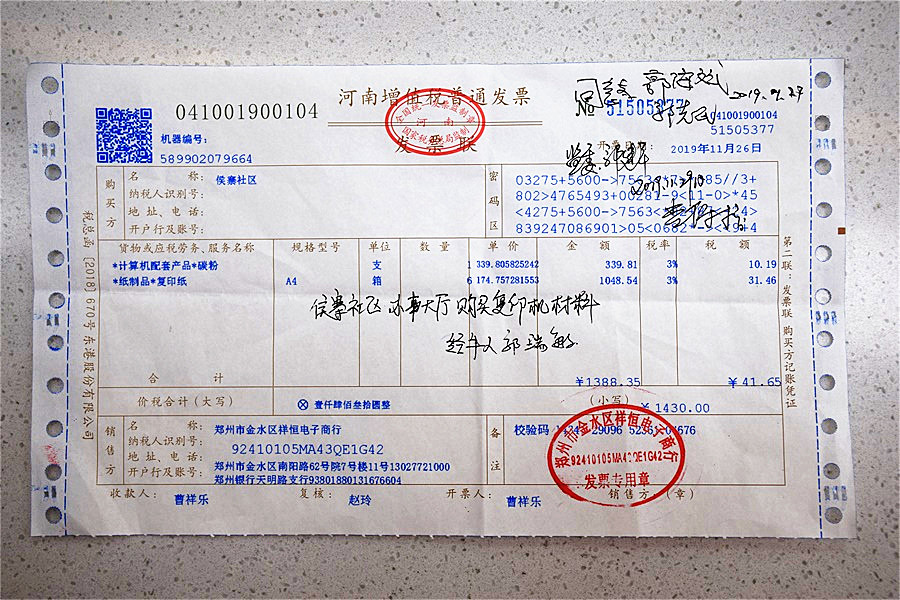 河南增值税普通发票
041001900104
发票联
全国统一发票监制章
河南
国家税务总局监制
同意
51505377
2019.12.29
041001900104
51505377
机器编号:
589902079664
开票日期: 2019年11月26日
购买方
名 称: 侯寨社区
纳税人识别号:
地 址、电 话:
开户行及账号:
密码区
03275+5600->756
85//3+
802>4765493+00281-9<11-0>*45
<4275+5600->7563<
4>
839247086901>05<0682
9+4
货物或应税劳务、服务名称 规格型号 单位 数 量 单 价 金 额 税率 税 额
*计算机配套产品*碳粉 支 1 339.805825242 339.81 3% 10.19
*纸制品*复印纸 A4 箱 6 174.757281553 1048.54 3% 31.46
侯寨社区办事大厅购买复印机材料
经手人 郭瑞敏
合 计 ¥1388.35 ¥41.65
价税合计（大写） ⓧ 壹仟肆佰叁拾圆整 （小写） ¥1430.00
销售方
名 称: 郑州市金水区祥恒电子商行
纳税人识别号: 92410105MA43QE1G42
地 址、电 话: 郑州市金水区南阳路62号院7号楼11号13027721000
开户行及账号: 郑州银行天明路支行93801880131676604
备注
校验码
29096
郑州市金水区祥恒电子商行
92410105MA43QE1G42
发票专用章
收款人: 曹祥乐 复核: 赵玲 开票人: 曹祥乐 销售方:（章）
税总函〔2018〕670号东港股份有限公司
第二联：发票联 购买方记账凭证